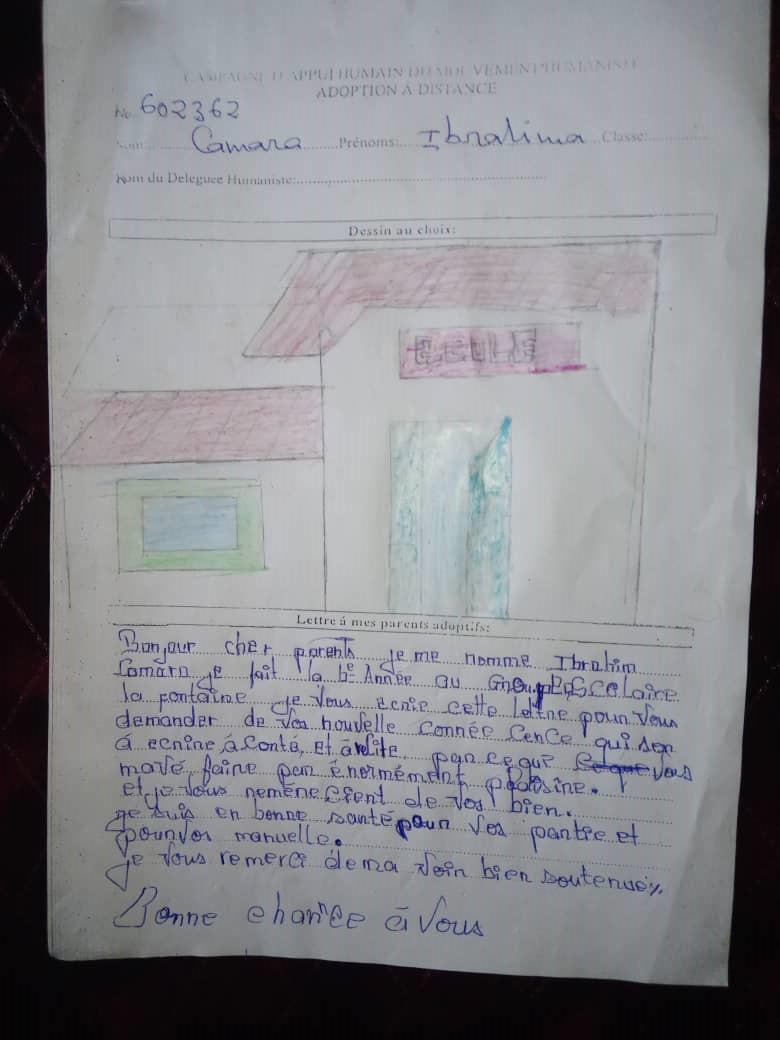 CAMPAGNE D'APPUI HUMAIN DU MOUVEMENT HUMANISTE
ADOPTION À DISTANCE
No 602362
Nom: Camara Prénoms: Ibrahima Classe:
Nom du Deleguee Humaniste:
Dessin au choix:
ECOLE
Lettre á mes parents adoptifs:
Bonjour cher parents je me nomme Ibrahim
Camara je fait la 6e Année au Groupe Scolaire
la fontaine je vous ecrie cette lettre pour vous
demander de vos nouvelle Connée Cence qui son
á ecrire, á Conté, et á parce que vous
mavé faire énormément
et je vous remène Cient de vos bien.
je suis en bonne santé pour vos partie et
pour vos manuelle.
je vous remerci de ma voin bien soutenue
Bonne chance á vous